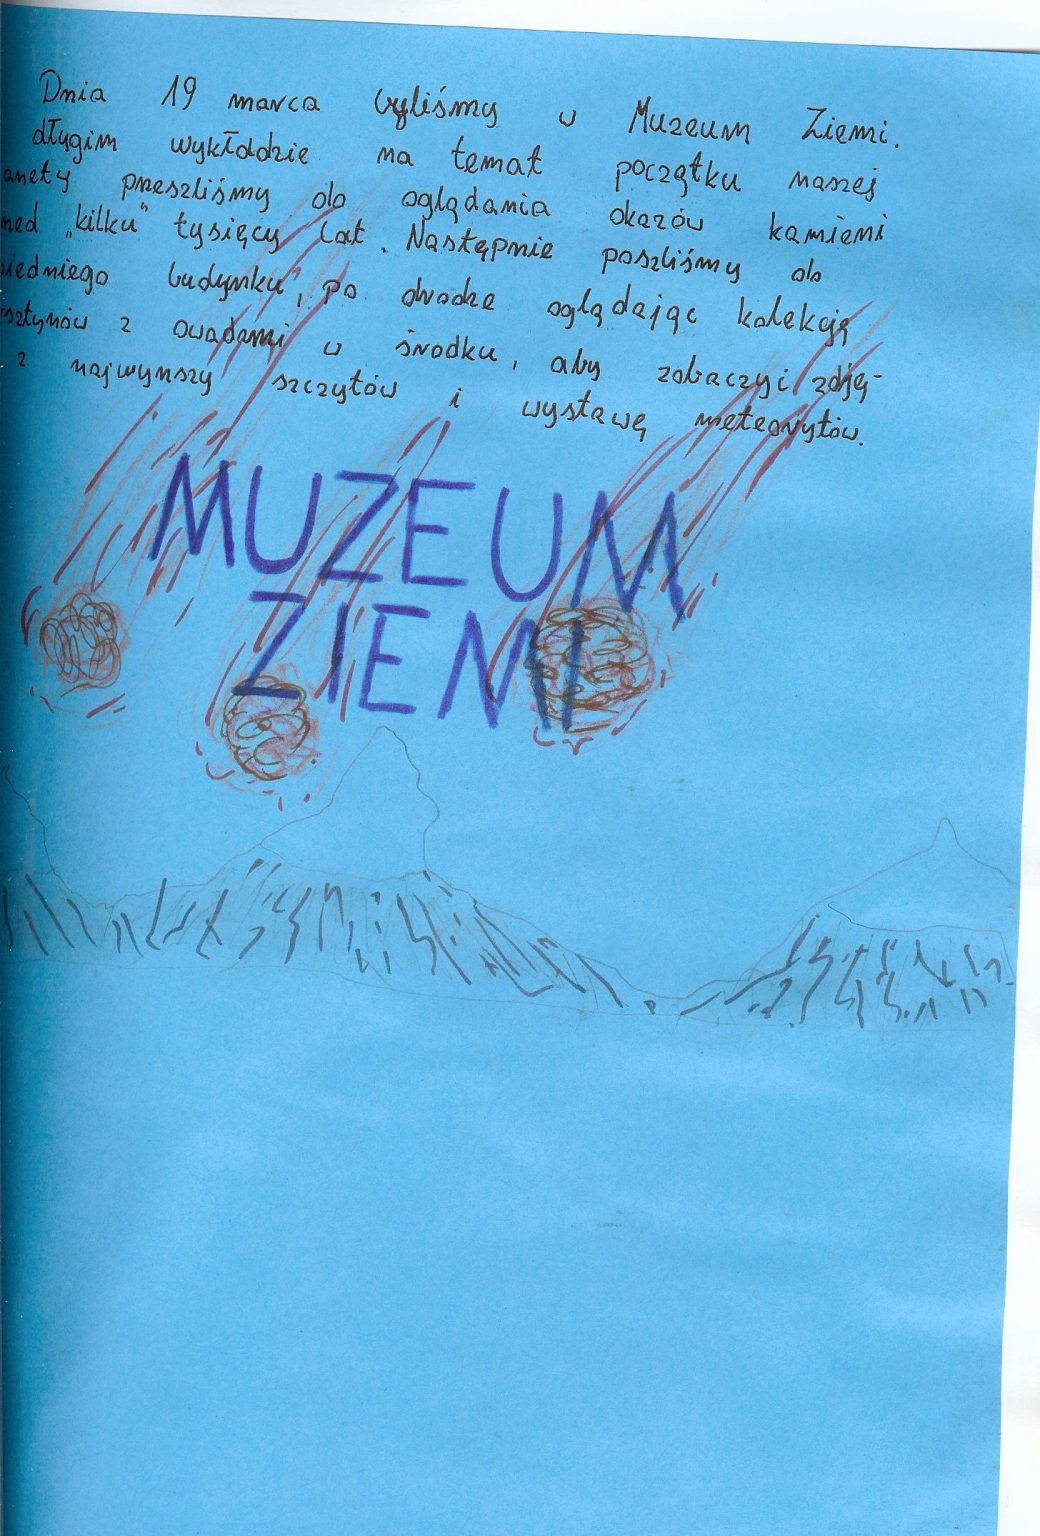 Dnia 19 marca byliśmy w Muzeum Ziemi.
długim wykłodzie na temat początku naszej
anety przeszliśmy do oglądania okazów kamieni
zed „kilku” tysięcy lat. Następnie poszliśmy do
siedniego budynku, po drodze oglądając kolekcję
rsztynów z owadami w środku, aby zobaczyć zdję-
z najwyższy szczytów i wystawę meteorytów.
MUZEUM
ZIEMI